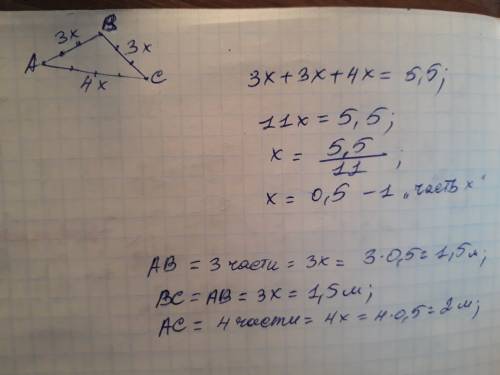 B
3x
3x
A
C
4x
3x + 3x + 4x = 5,5;
11x = 5,5;
x = 5,5/11;
x = 0,5 - 1 „часть x"
AB = 3 части = 3x = 3·0,5 = 1,5м;
BC = AB = 3x = 1,5м;
AC = 4 части = 4x = 4·0,5 = 2м;